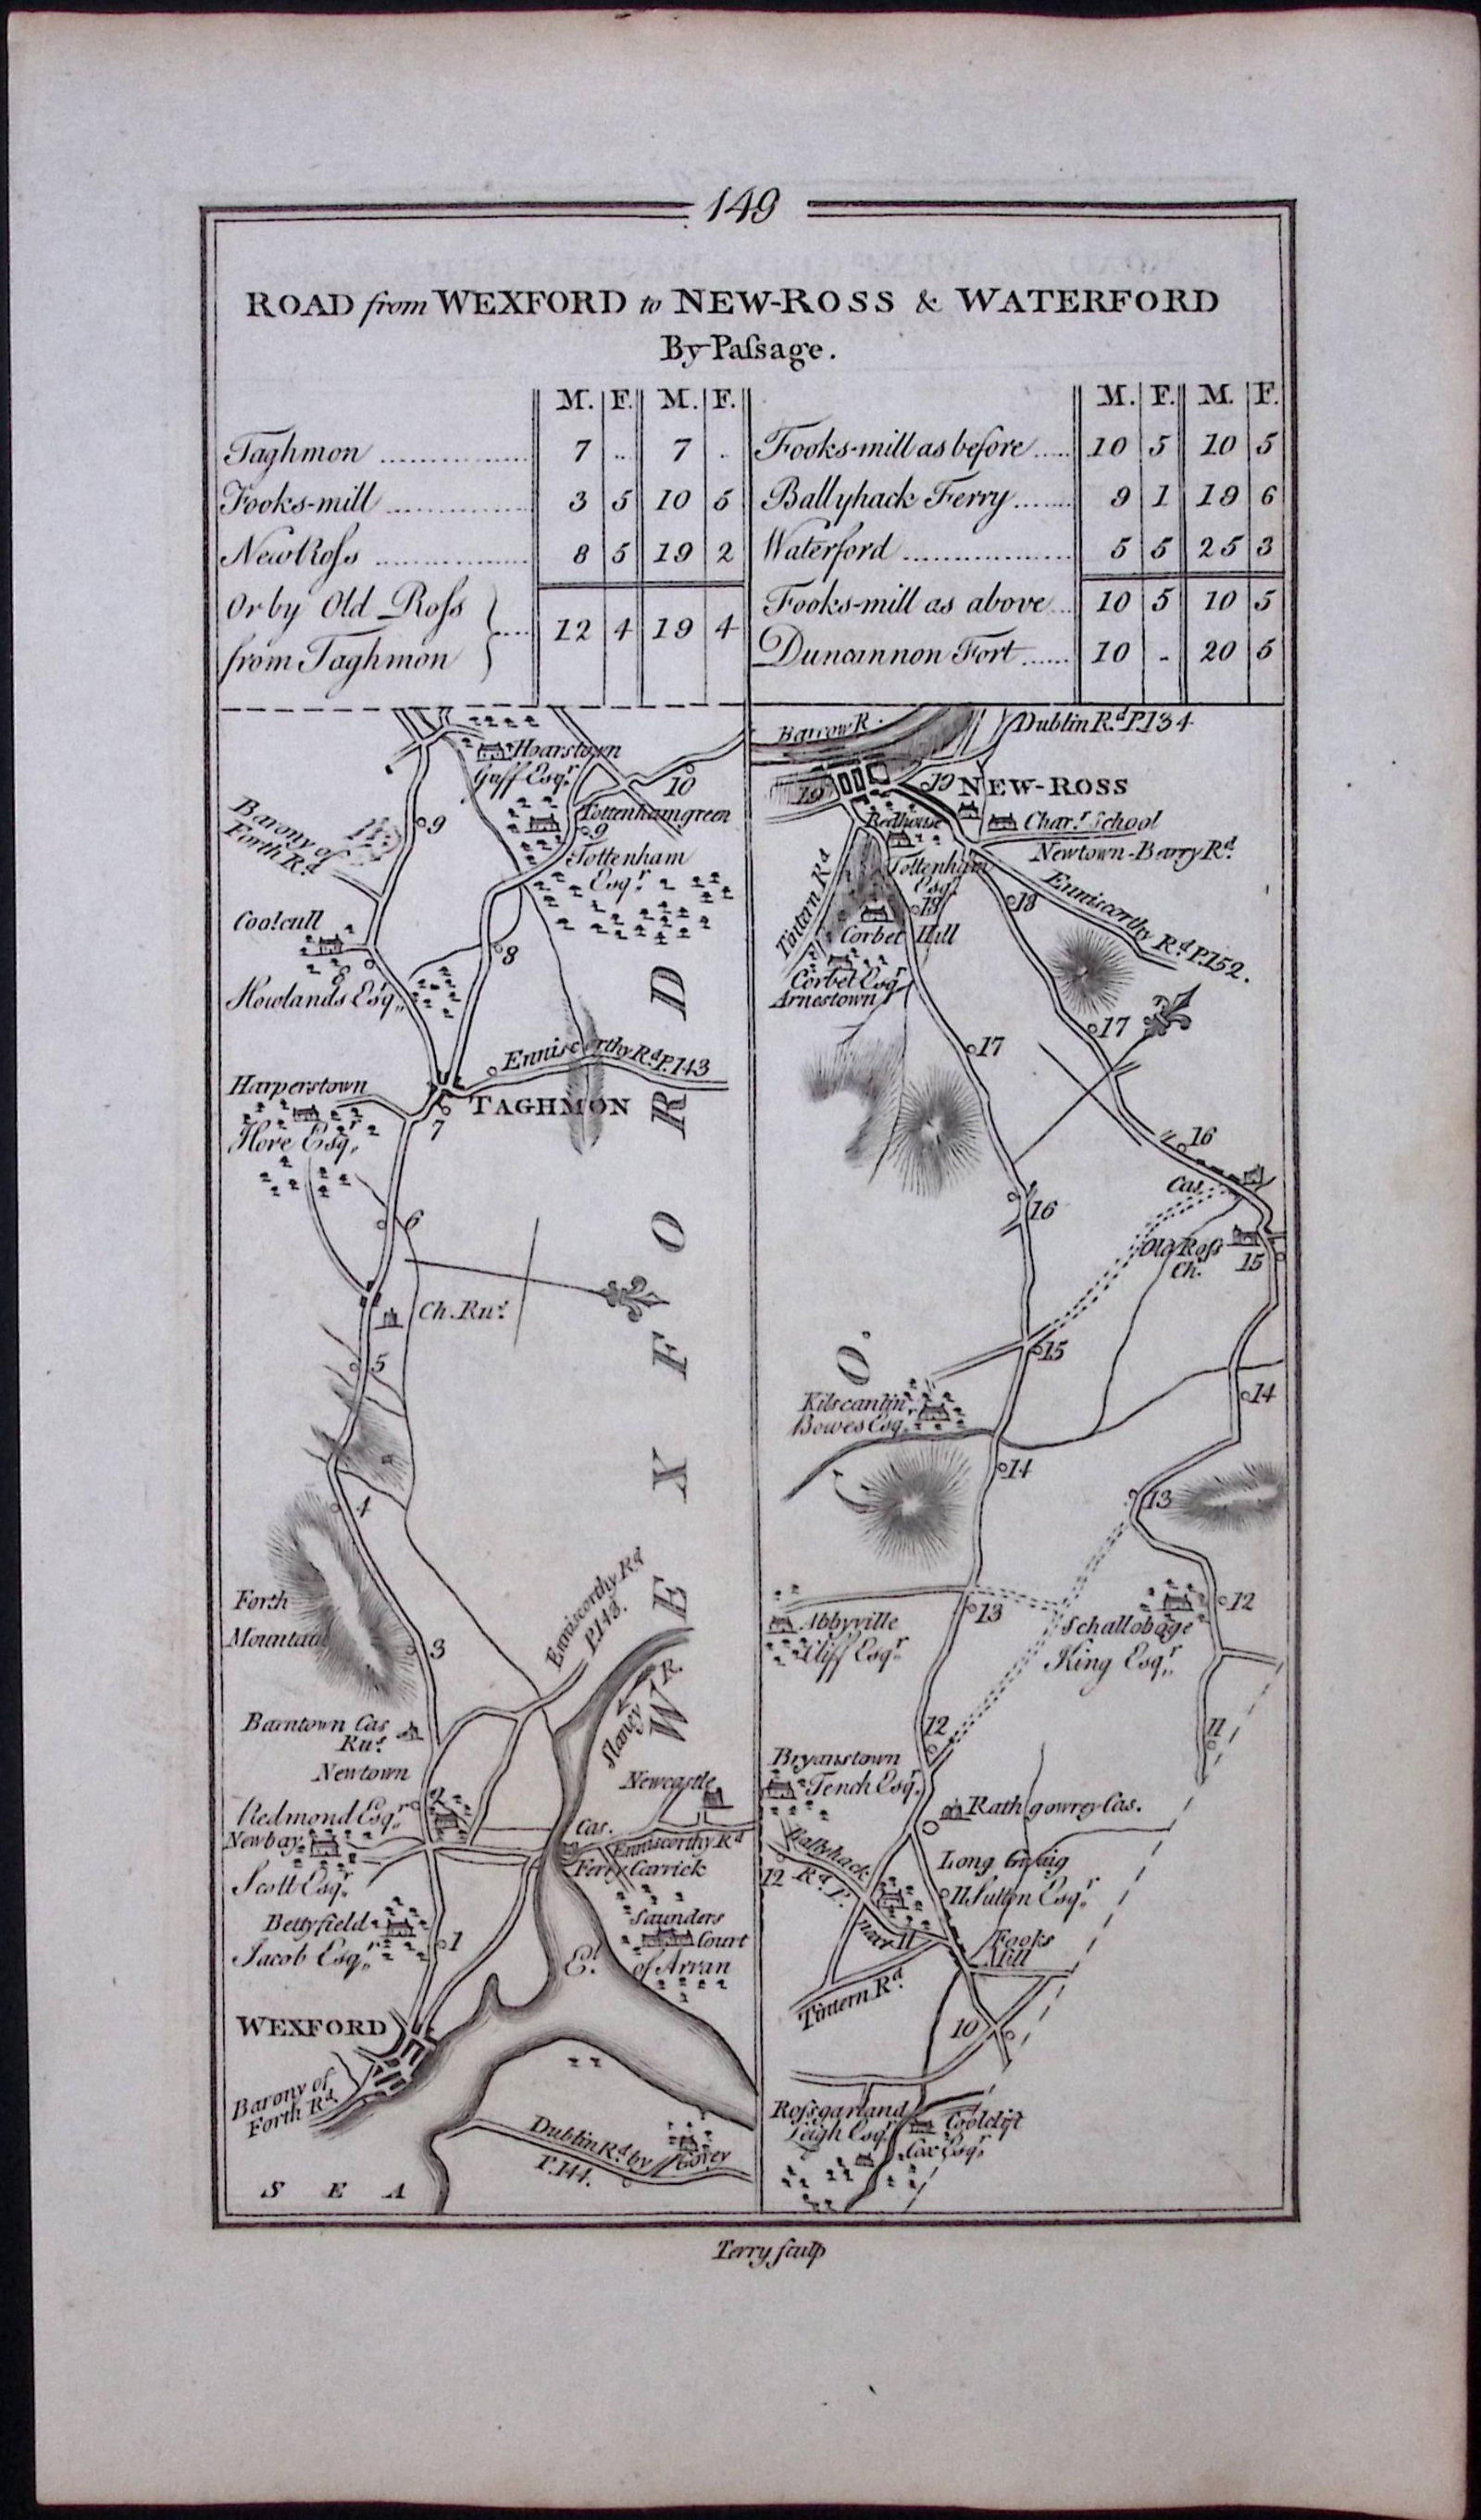 149
ROAD from WEXFORD to NEW-ROSS & WATERFORD
By Paſsage.
M. F. M. F.
Taghmon 7 .. 7 .
Fooks-mill 3 5 10 5
New Roſs 8 5 19 2
Or by Old Roſs
from Taghmon 12 4 19 4
M. F. M. F.
Fooks-mill as before 10 5 10 5
Ballyhack Ferry 9 1 19 6
Waterford 5 5 25 3
Fooks-mill as above 10 5 10 5
Duncannon Fort 10 - 20 5
Hoarstown
Goff Esqr.
10
Tottenham green
9
9
Tottenham
Esqr.
Barony of
Forth Rd.
Coolcull
8
8
Howlands Esqr.
Enniscorthy Rd. P.143
Harperstown
TAGHMON
7
Hore Esqr.
6
Ch. Rus.
5
4
Forth
Mountain
3
Enniscorthy Rd.
P.143.
Slaney R.
Barntown Cas
Rus.
Newtown
2
Redmond Esqr.
Newcastle
Newbay
Cas.
Enniscorthy Rd
Ferry Carrick
Scott Esqr.
Bettyfield
Jacob Esqr.
1
Saunders
Court
El. of Arran
WEXFORD
Barony of
Forth Rd.
Dublin Rd. by Gorey
P.144.
SEA
WEXFORD
Barrow R.
Dublin Rd. P.134
19
19
NEW-ROSS
Redhouse
Char. School
Newtown-Barry Rd.
Tottenham
Esqr.
Enniscorthy Rd. P.152.
Tintern Rd
18
18
Corbet Hill
Corbet Esqr
Arnestown
17
17
16
16
Cas.
Old Roſs
Ch.
15
15
CO.
14
Kilscanlin
Bowes Esqr.
14
13
12
13
Abbyville
Cliff Esqr.
Schallobage
King Esqr.
12
11
Bryanstown
Tench Esqr.
Rathgowrey Cas.
Ballyhack
Rd. P.
12
Long Graig
11
Sutton Esqr.
near 11
Fooks
Mill
Tintern Rd.
10
Roſsgarland
Leigh Esqr.
Coolclift
Cox Esqr.
Terry sculp